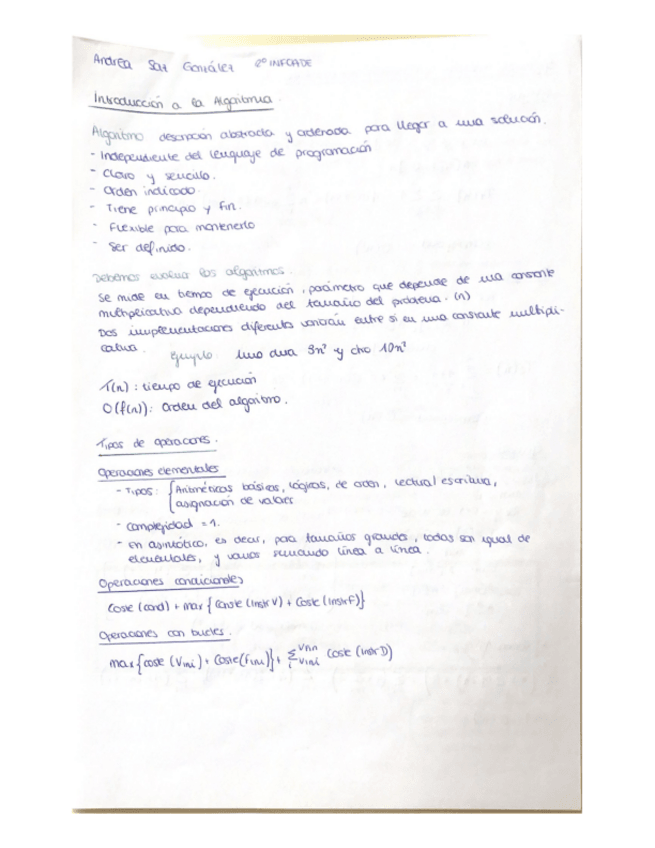 Andrea Saz González 2º INFCADE
Introducción a la Algoritmia.
Algoritmo descripción abstracta y ordenada para llegar a una solución.
- Independiente del lenguaje de programación
- Claro y sencillo.
- Orden indicado.
- Tiene principio y fin.
- Flexible para mantenerlo
- Ser definido.
Debemos evaluar los algoritmos.
Se mide en tiempo de ejecución, parámetro que depende de una constante
multiplicativa dependiendo del tamaño del problema. (n)
Dos implementaciones diferentes variarán entre sí en una constante multipli-
cativa. Ejemplo: Uno dura 3n² y otro 10n²
T(n): tiempo de ejecución
O(f(n)): Orden del algoritmo.
Tipos de operaciones.
Operaciones elementales
- Tipos: { Aritméticas básicas, lógicas, de orden, lectura/escritura,
asignación de valores
- Complejidad = 1.
- En asintótico, es decir, para tamaños grandes, todas son igual de
elementales, y vamos sumando línea a línea.
Operaciones condicionales
Coste (cond) + max {Coste (InstrV) + Coste (InstrF)}
Operaciones con bucles.
max{coste (Vini) + Coste(Fini)} + Σ Vfin i Vini Coste (instrD)